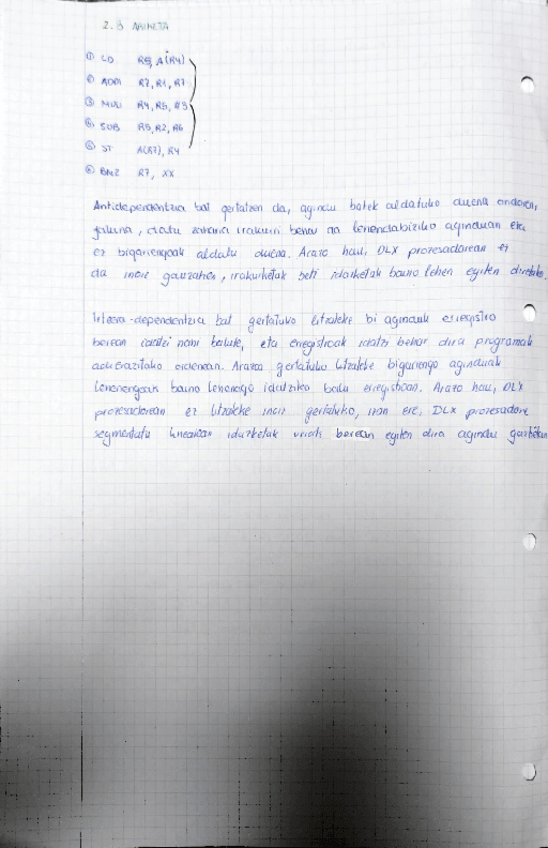 2.3 ARIKETA
① LD R5, A(R4)
② ADDI R7, R1, R7
③ MULI R4, R5, #3
④ SUB R5, R2, R6
⑤ ST A(R7), R4
⑥ BNZ R7, XX
Antidependentzia bat gertatzen da, agindu batek aldatuko duena ondoren,
jakina, datu zaharra irakurri behar da lehendabiziko aginduan eta
ez bigarrengoak aldatu duena. Arazo hau, DLX prozesadorean ez
da inoiz gauzatzen, irakurketak beti idazketak baino lehen egiten direlako.
Irteera-dependentzia bat gertatuko litzateke bi aginduak erregistro
berean idatzi nahi balute, eta erregistroak idatzi behar dira programak
adierazitako ordenean. Arazoa gertatuko litzateke bigarrengo aginduak
lehenengoak baino lehenago idatziko balu erregistroan. Arazo hau, DLX
prozesadorean ez litzateke inoiz gertatuko, izan ere, DLX prozesadore
segmentatu linealean idazketak urrats berean egiten dira agindu guztietan